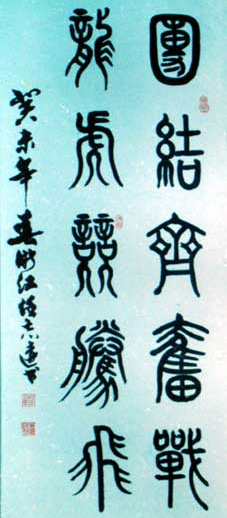 團結齊奮戰
龍虎競騰飛
癸未年春